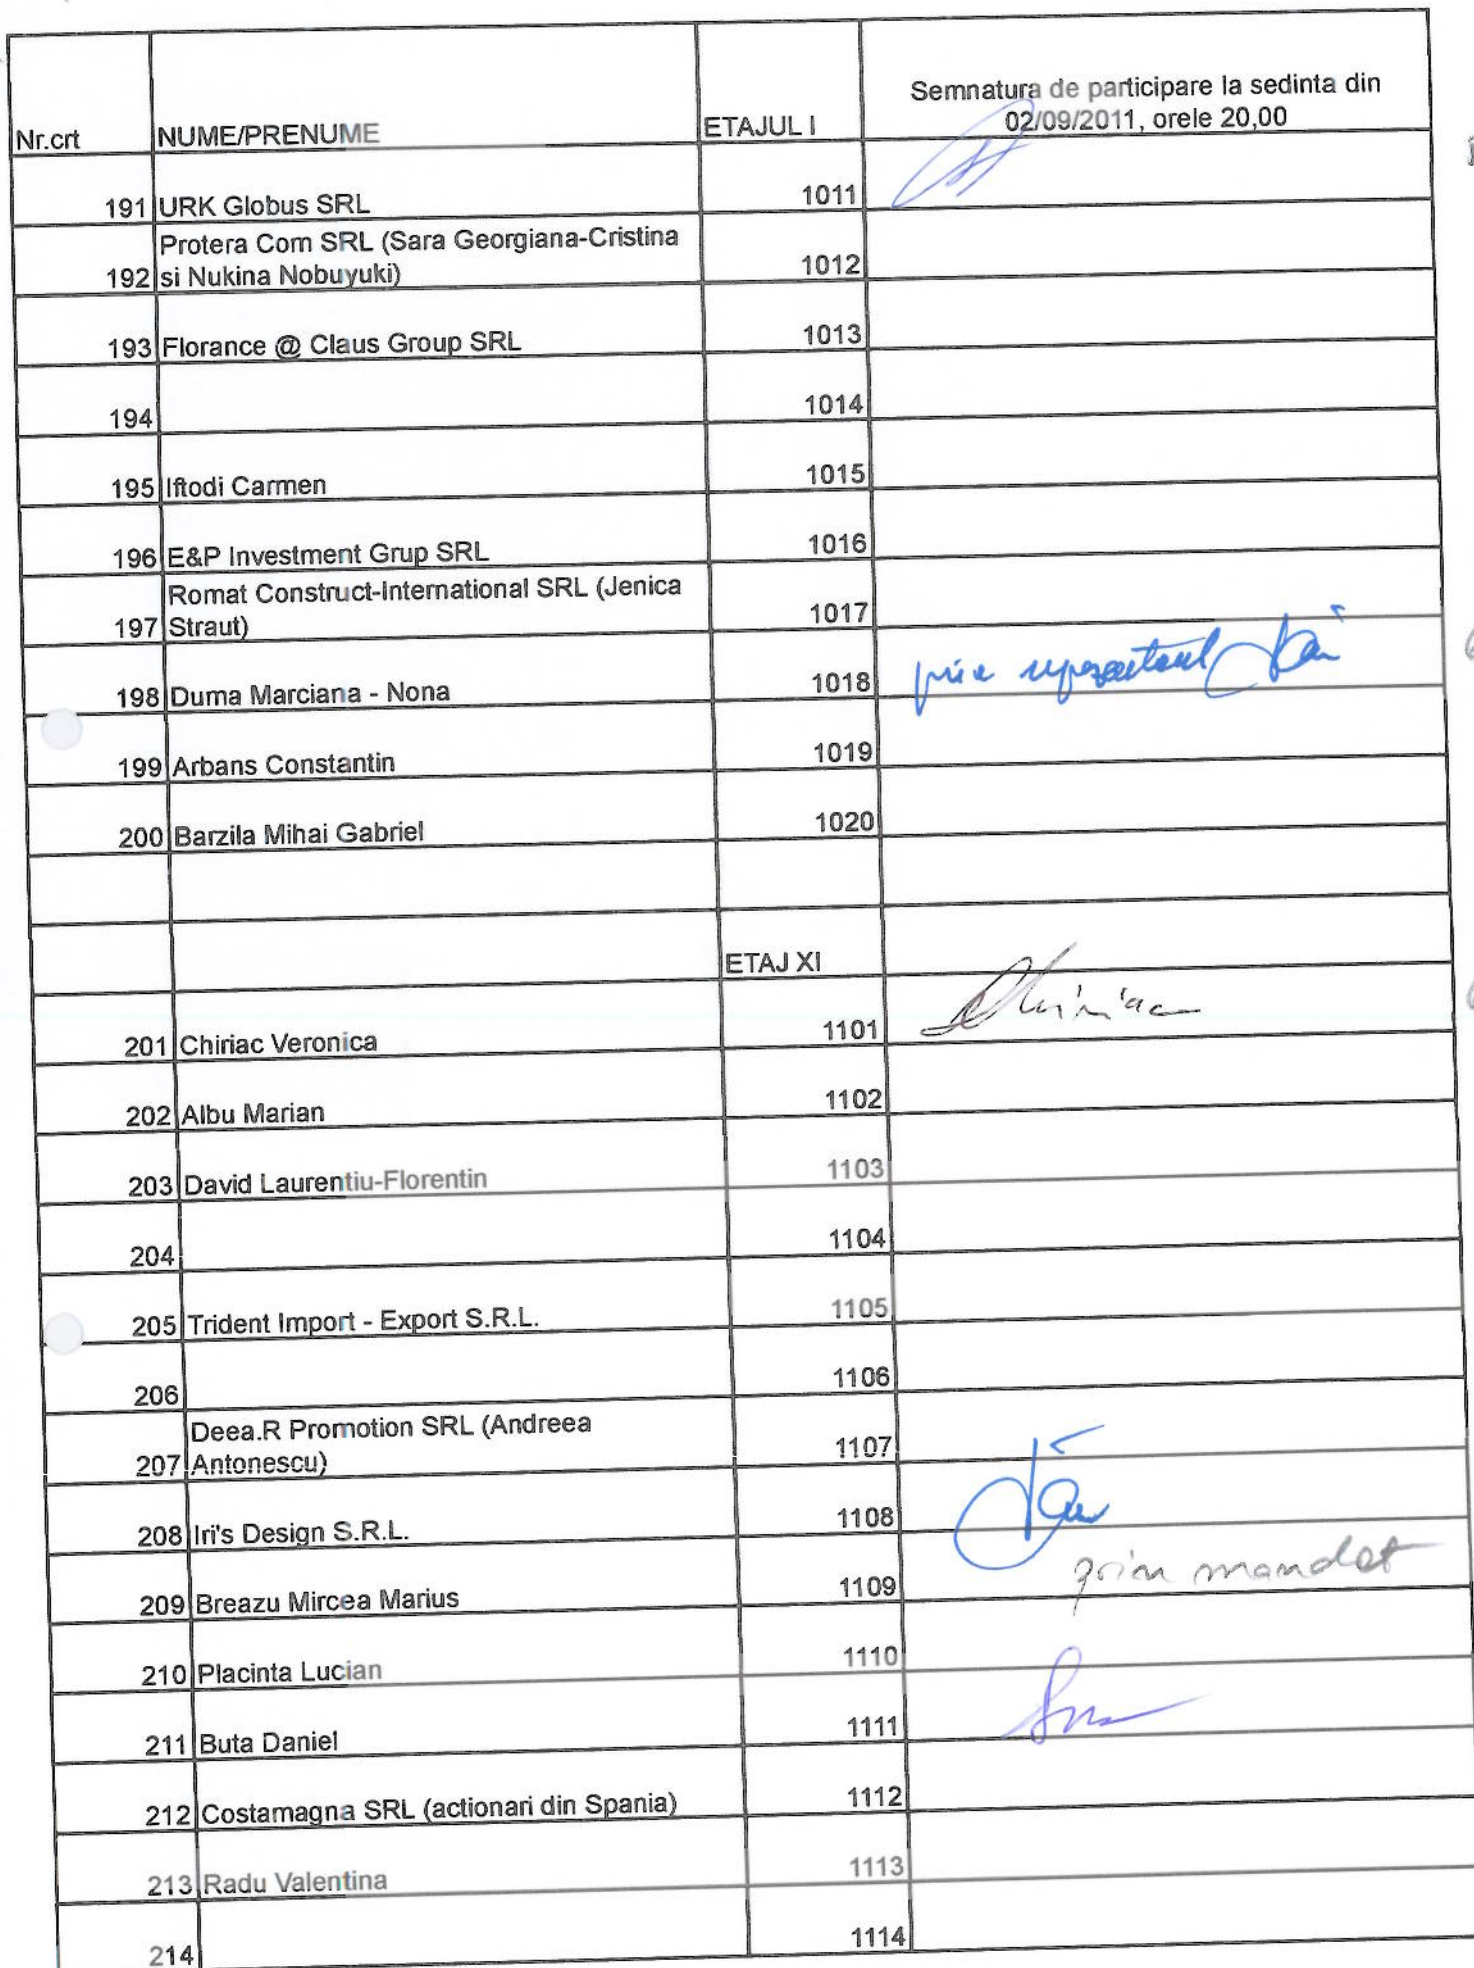 Semnatura de participare la sedinta din
Nr.crt NUME/PRENUME ETAJUL I 02/09/2011, orele 20,00
191 URK Globus SRL 1011
Protera Com SRL (Sara Georgiana-Cristina
192 si Nukina Nobuyuki) 1012
193 Florance @ Claus Group SRL 1013
194 1014
195 Iftodi Carmen 1015
196 E&P Investment Grup SRL 1016
Romat Construct-International SRL (Jenica
197 Straut) 1017
198 Duma Marciana - Nona 1018
199 Arbans Constantin 1019
200 Barzila Mihai Gabriel 1020
ETAJ XI
201 Chiriac Veronica 1101 Chiriac
202 Albu Marian 1102
203 David Laurentiu-Florentin 1103
204 1104
205 Trident Import - Export S.R.L. 1105
206 1106
Deea.R Promotion SRL (Andreea
207 Antonescu) 1107
208 Iri's Design S.R.L. 1108
209 Breazu Mircea Marius 1109 prin mandat
210 Placinta Lucian 1110
211 Buta Daniel 1111
212 Costamagna SRL (actionari din Spania) 1112
213 Radu Valentina 1113
214 1114